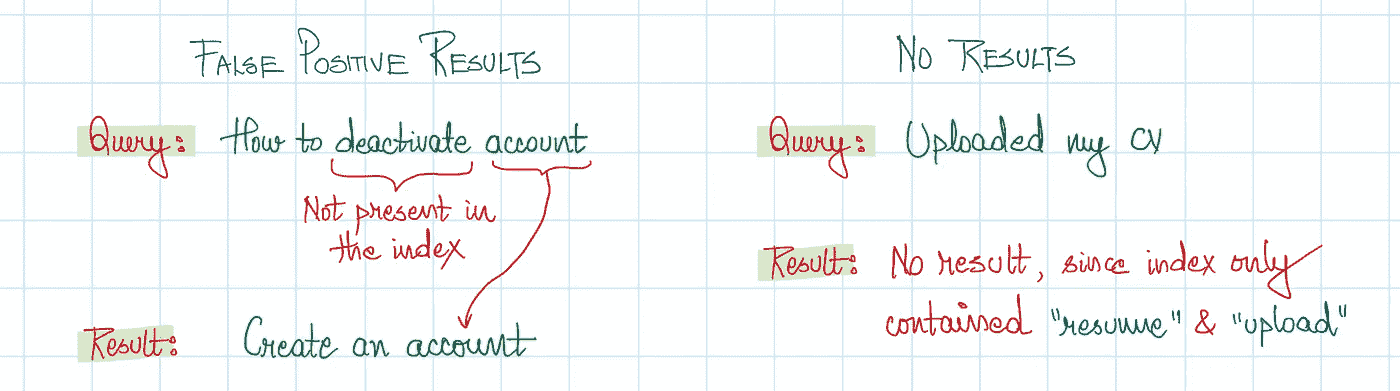 FALSE POSITIVE RESULTS
Query: How to deactivate account
Not present in
the index
Result: Create an account
NO RESULTS
Query: Uploaded my CV
Result: No result, since index only
contained "resume" & "upload"